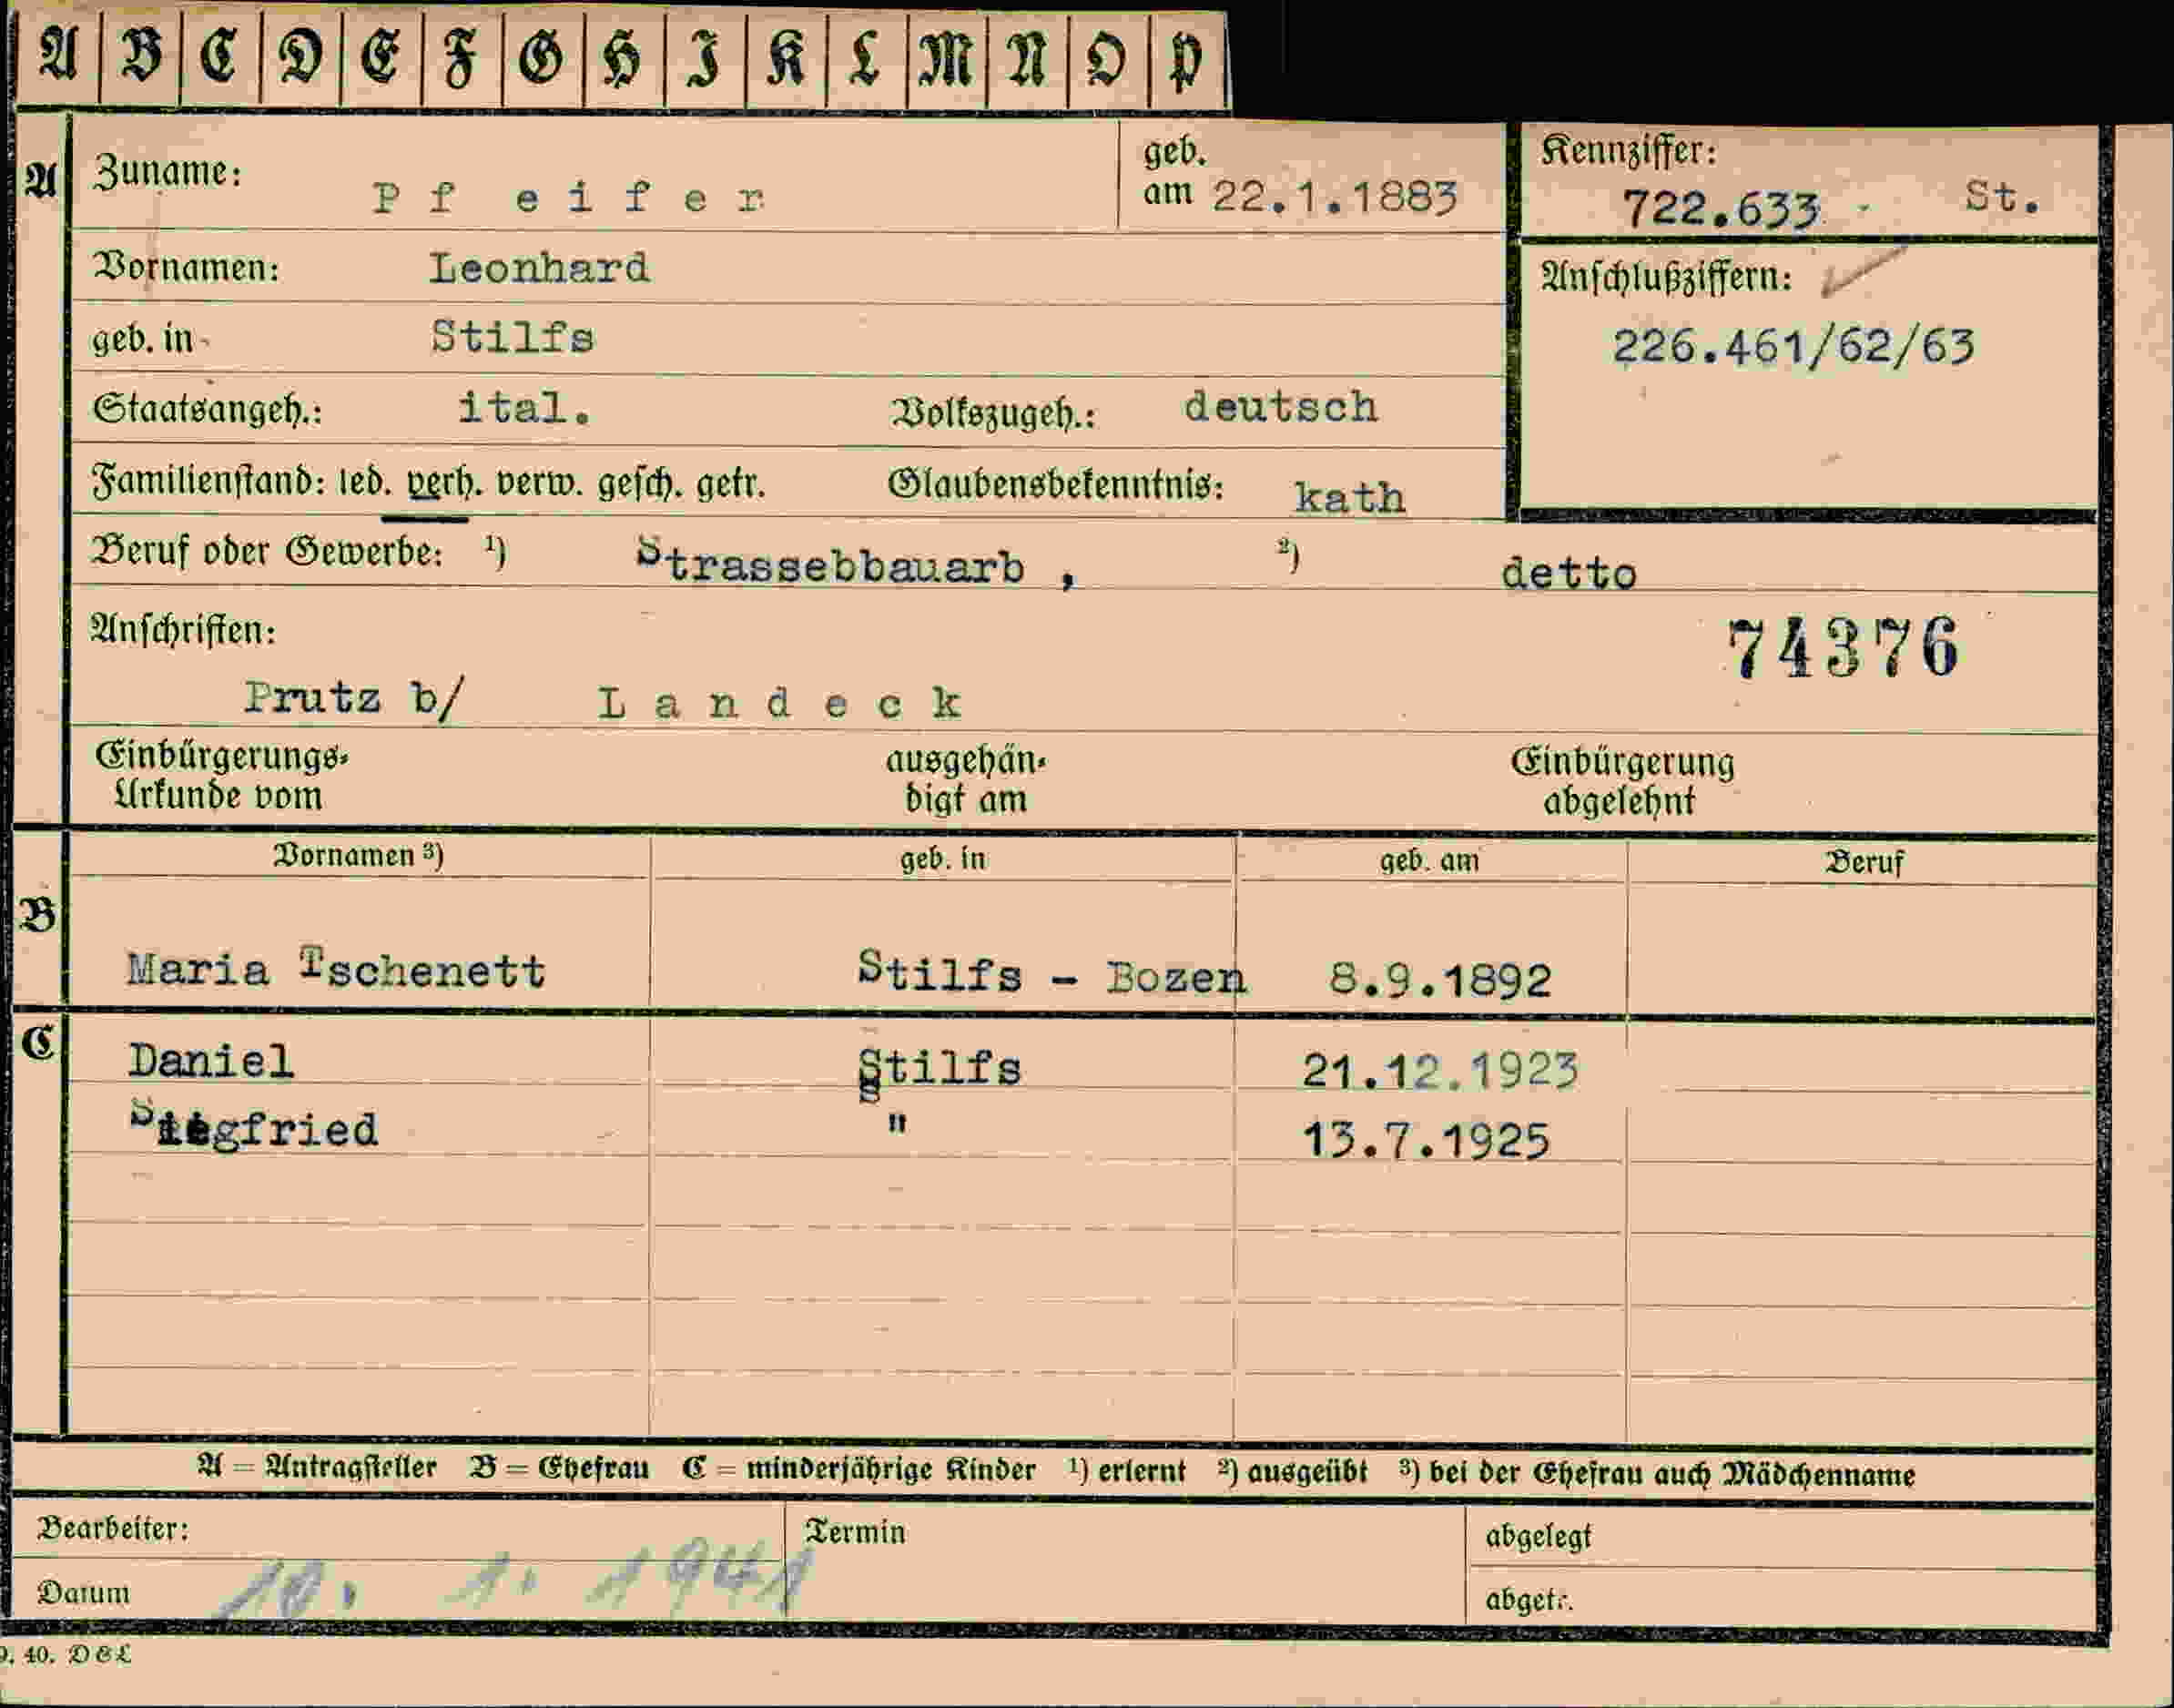 A B C D E F G H I K L M N O P
A Zuname: Pf eifer geb. am 22.1.1883 Kennziffer: 722.633 - St.
Vornamen: Leonhard
Anschlußziffern:
geb. in Stilfs 226.461/62/63
Staatsangeh.: ital. Volkszugeh.: deutsch
Familienstand: led. verh. verw. gesch. getr. Glaubensbekenntnis: kath
Beruf oder Gewerbe: ¹) Strassebbauarb , ²) detto
Anschriften: 74376
Prutz b/ Landeck
Einbürgerungs- ausgehän- Einbürgerung
Urkunde vom digt am abgelehnt
Vornamen ³) geb. in geb. am Beruf
B
Maria Tschenett Stilfs - Bozen 8.9.1892
C
Daniel Stilfs 21.12.1923
Siegfried " 13.7.1925
A = Antragsteller B = Ehefrau C = minderjährige Kinder ¹) erlernt ²) ausgeübt ³) bei der Ehefrau auch Mädchenname
Bearbeiter: Termin abgelegt
Datum 10. 1. 1941 abgetr.
9. 40. DEL